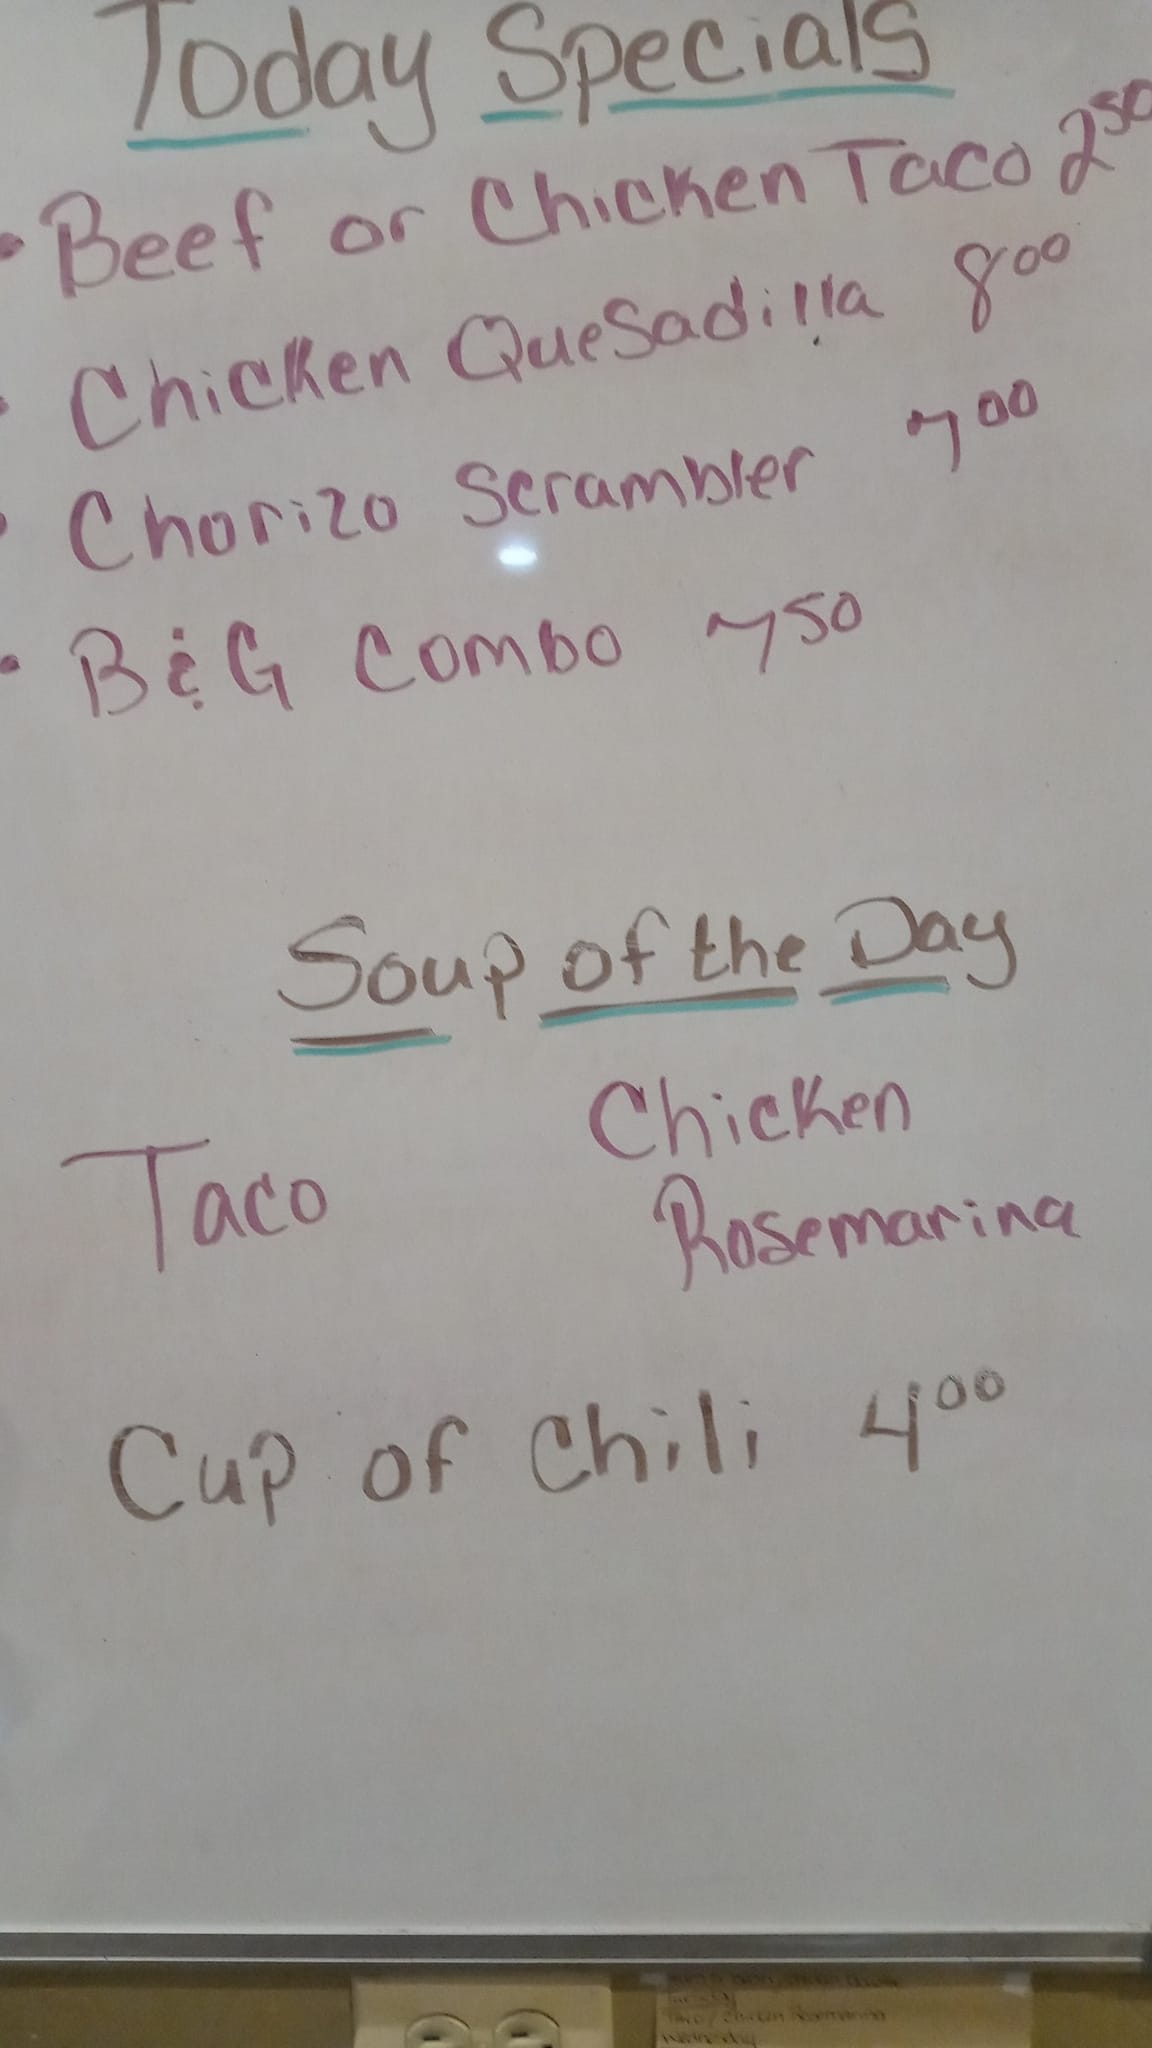 Today Specials
• Beef or Chicken Taco 2 50
• Chicken Quesadilla 8 00
• Chorizo Scrambler 7 00
• B & G Combo 7 50
Soup of the Day
Chicken
Taco
Rosemarina
Cup of Chili 4 00